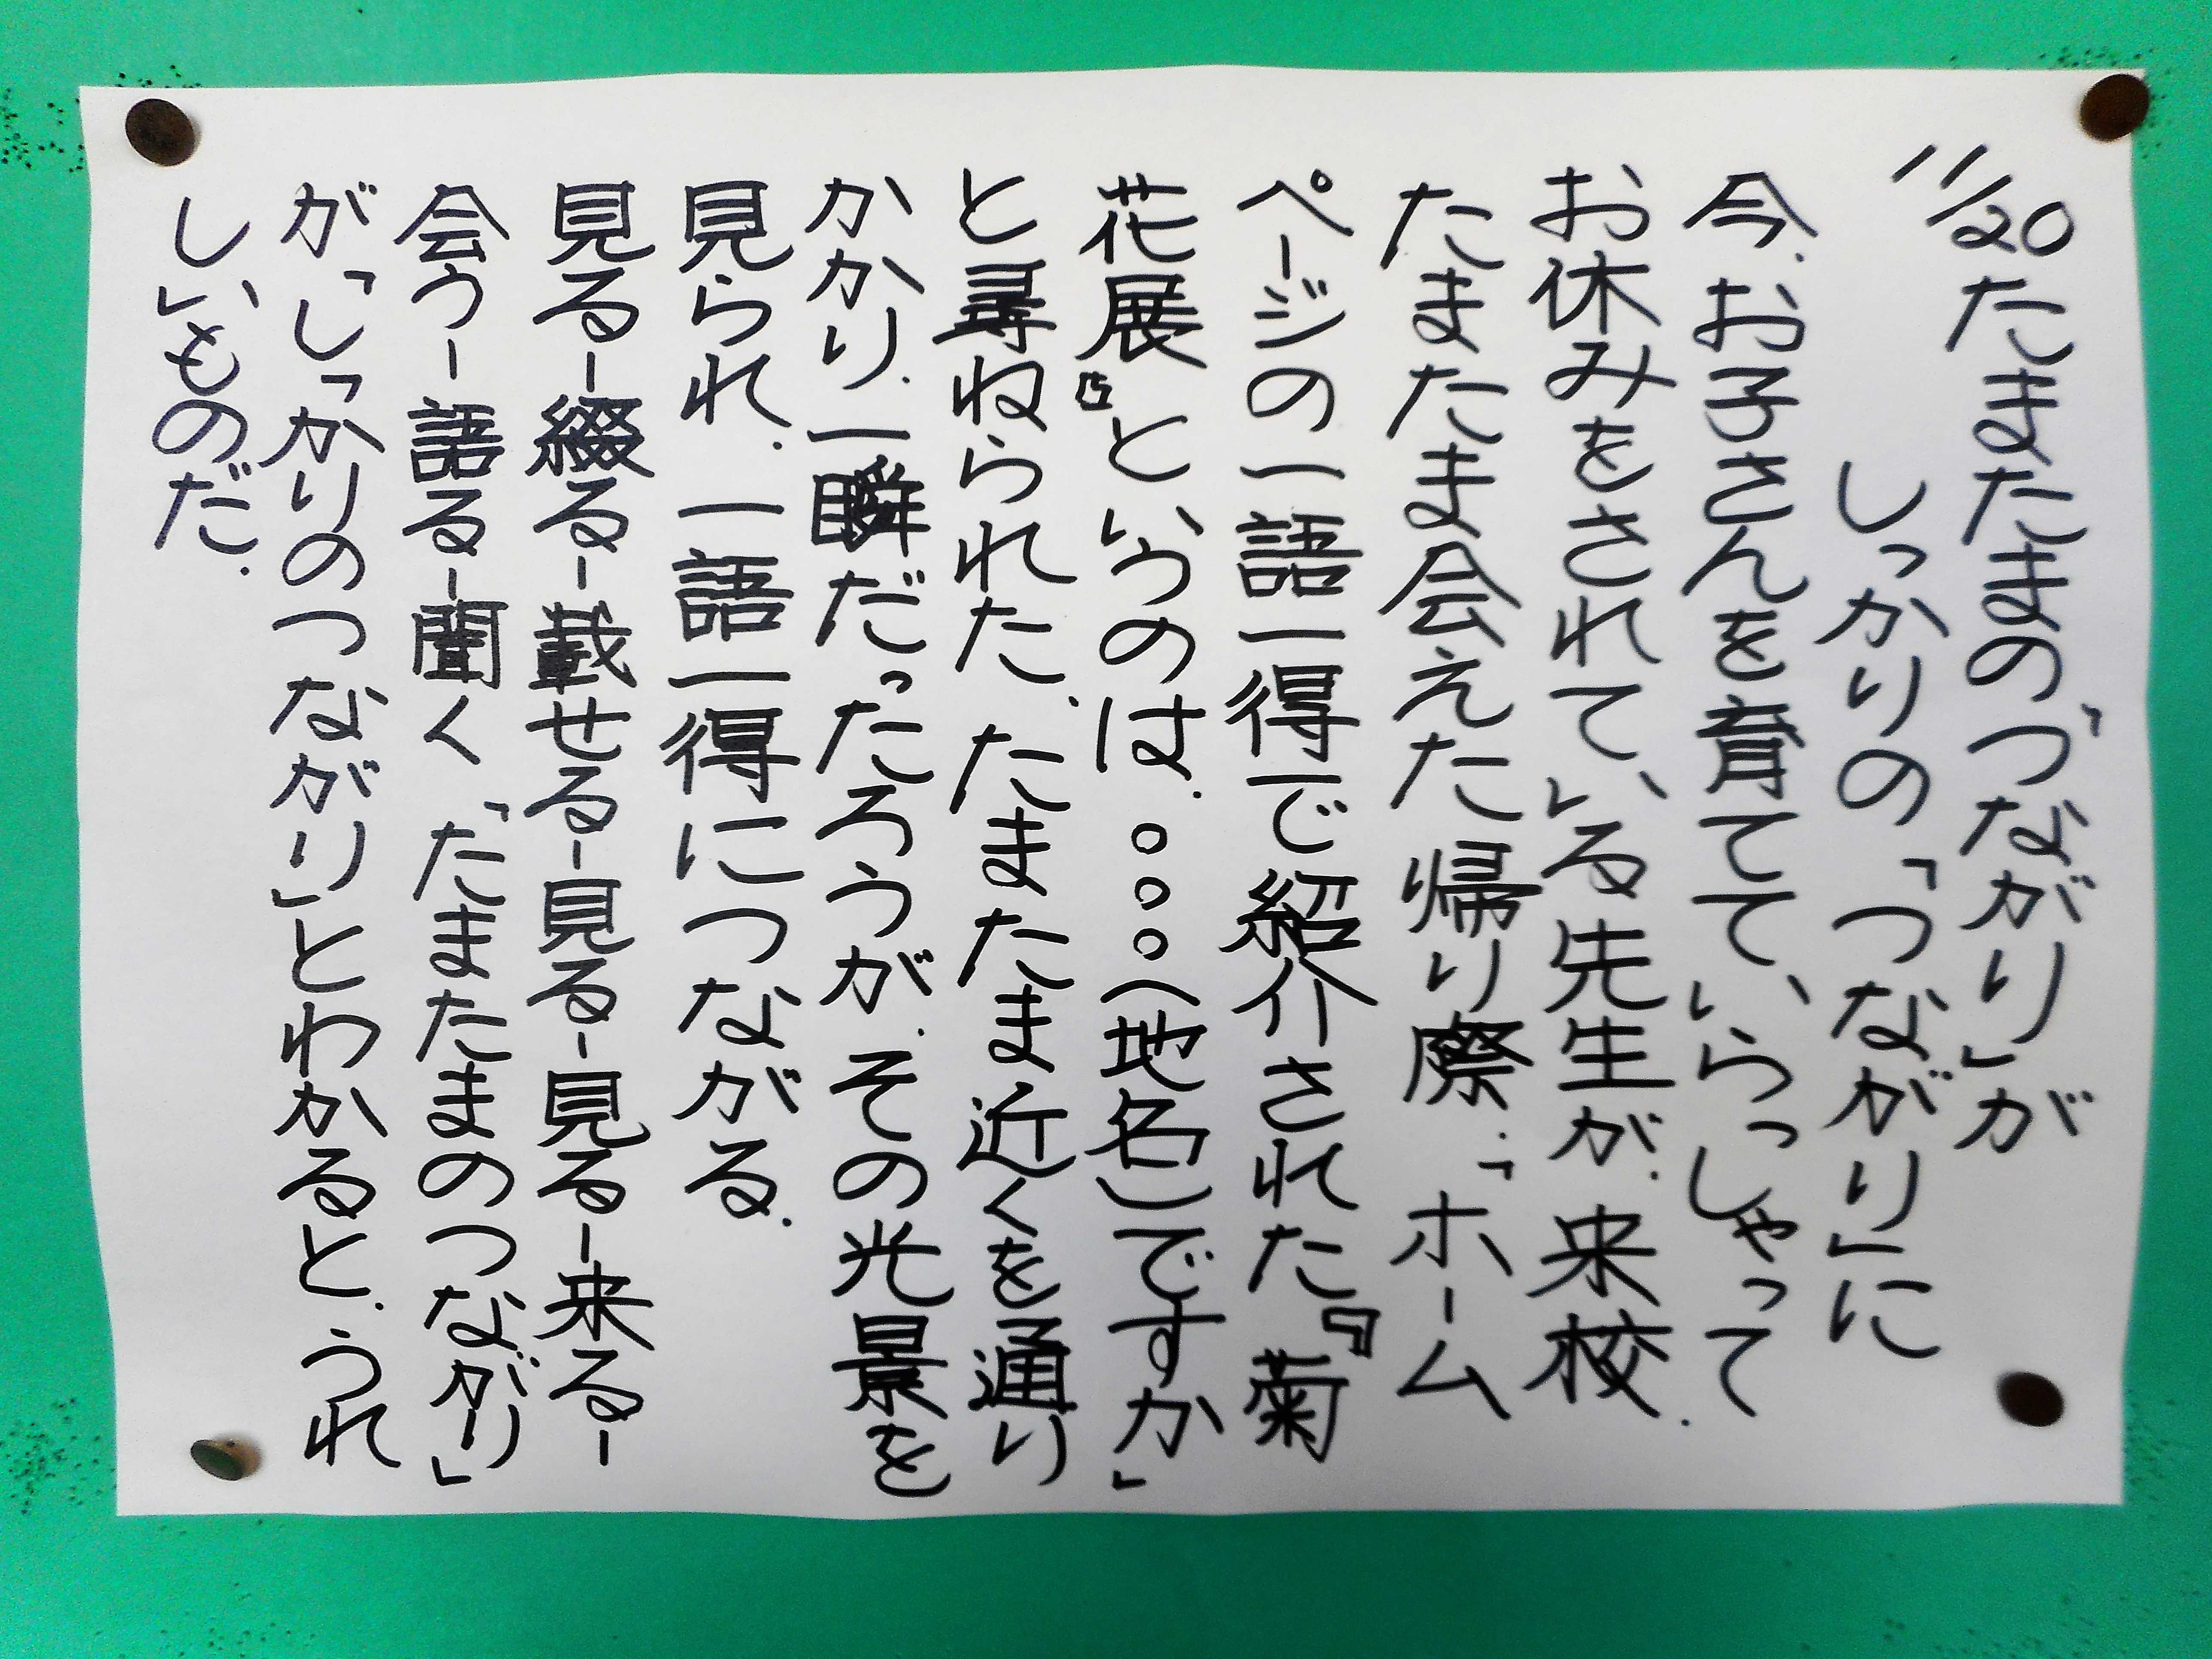 11/20 たまたまの「つながり」が
しっかりの「つながり」に
今、お子さんを育てていらっしゃって
お休みをされている先生が、来校、
たまたま会えた帰り際、「ホーム
ページの一語一得で紹介された『菊
花展』というのは、○○○(地名)ですか」
と尋ねられた、たまたま近くを通り
かかり、一瞬だったろうが、その光景を
見られ、一語一得につながる、
見る-綴る-載せる-見る-見る-来る-
会う-語る-聞く、「たまたまのつながり」
が「しっかりのつながり」とわかると、うれ
しいものだ、